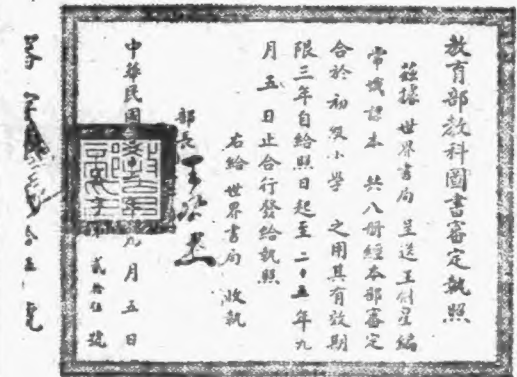 教育部教科圖書審定執照
茲據世界書局呈送王劍星編
常識課本共八冊經本部審定
合於初級小學之用其有效期
限三年自給照日起至二十五年九
月五日止合行發給執照
右給世界書局收執
部長王
中華民國二十二年九月五日
貳拾伍號